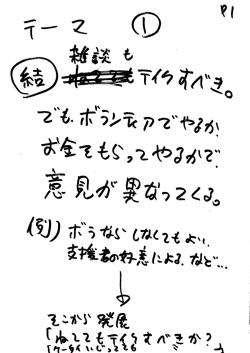 P1
テーマ ①
雑談も
結 テイクすべき。
でも、ボランティアでやるか、
お金をもらってやるかで、
意見が異なってくる。
(例) ボラならしなくてもよい、
支援者の好意による、など…
↓
そこから発展
「ねててもテイクすべきか?
(ケータイいじってても